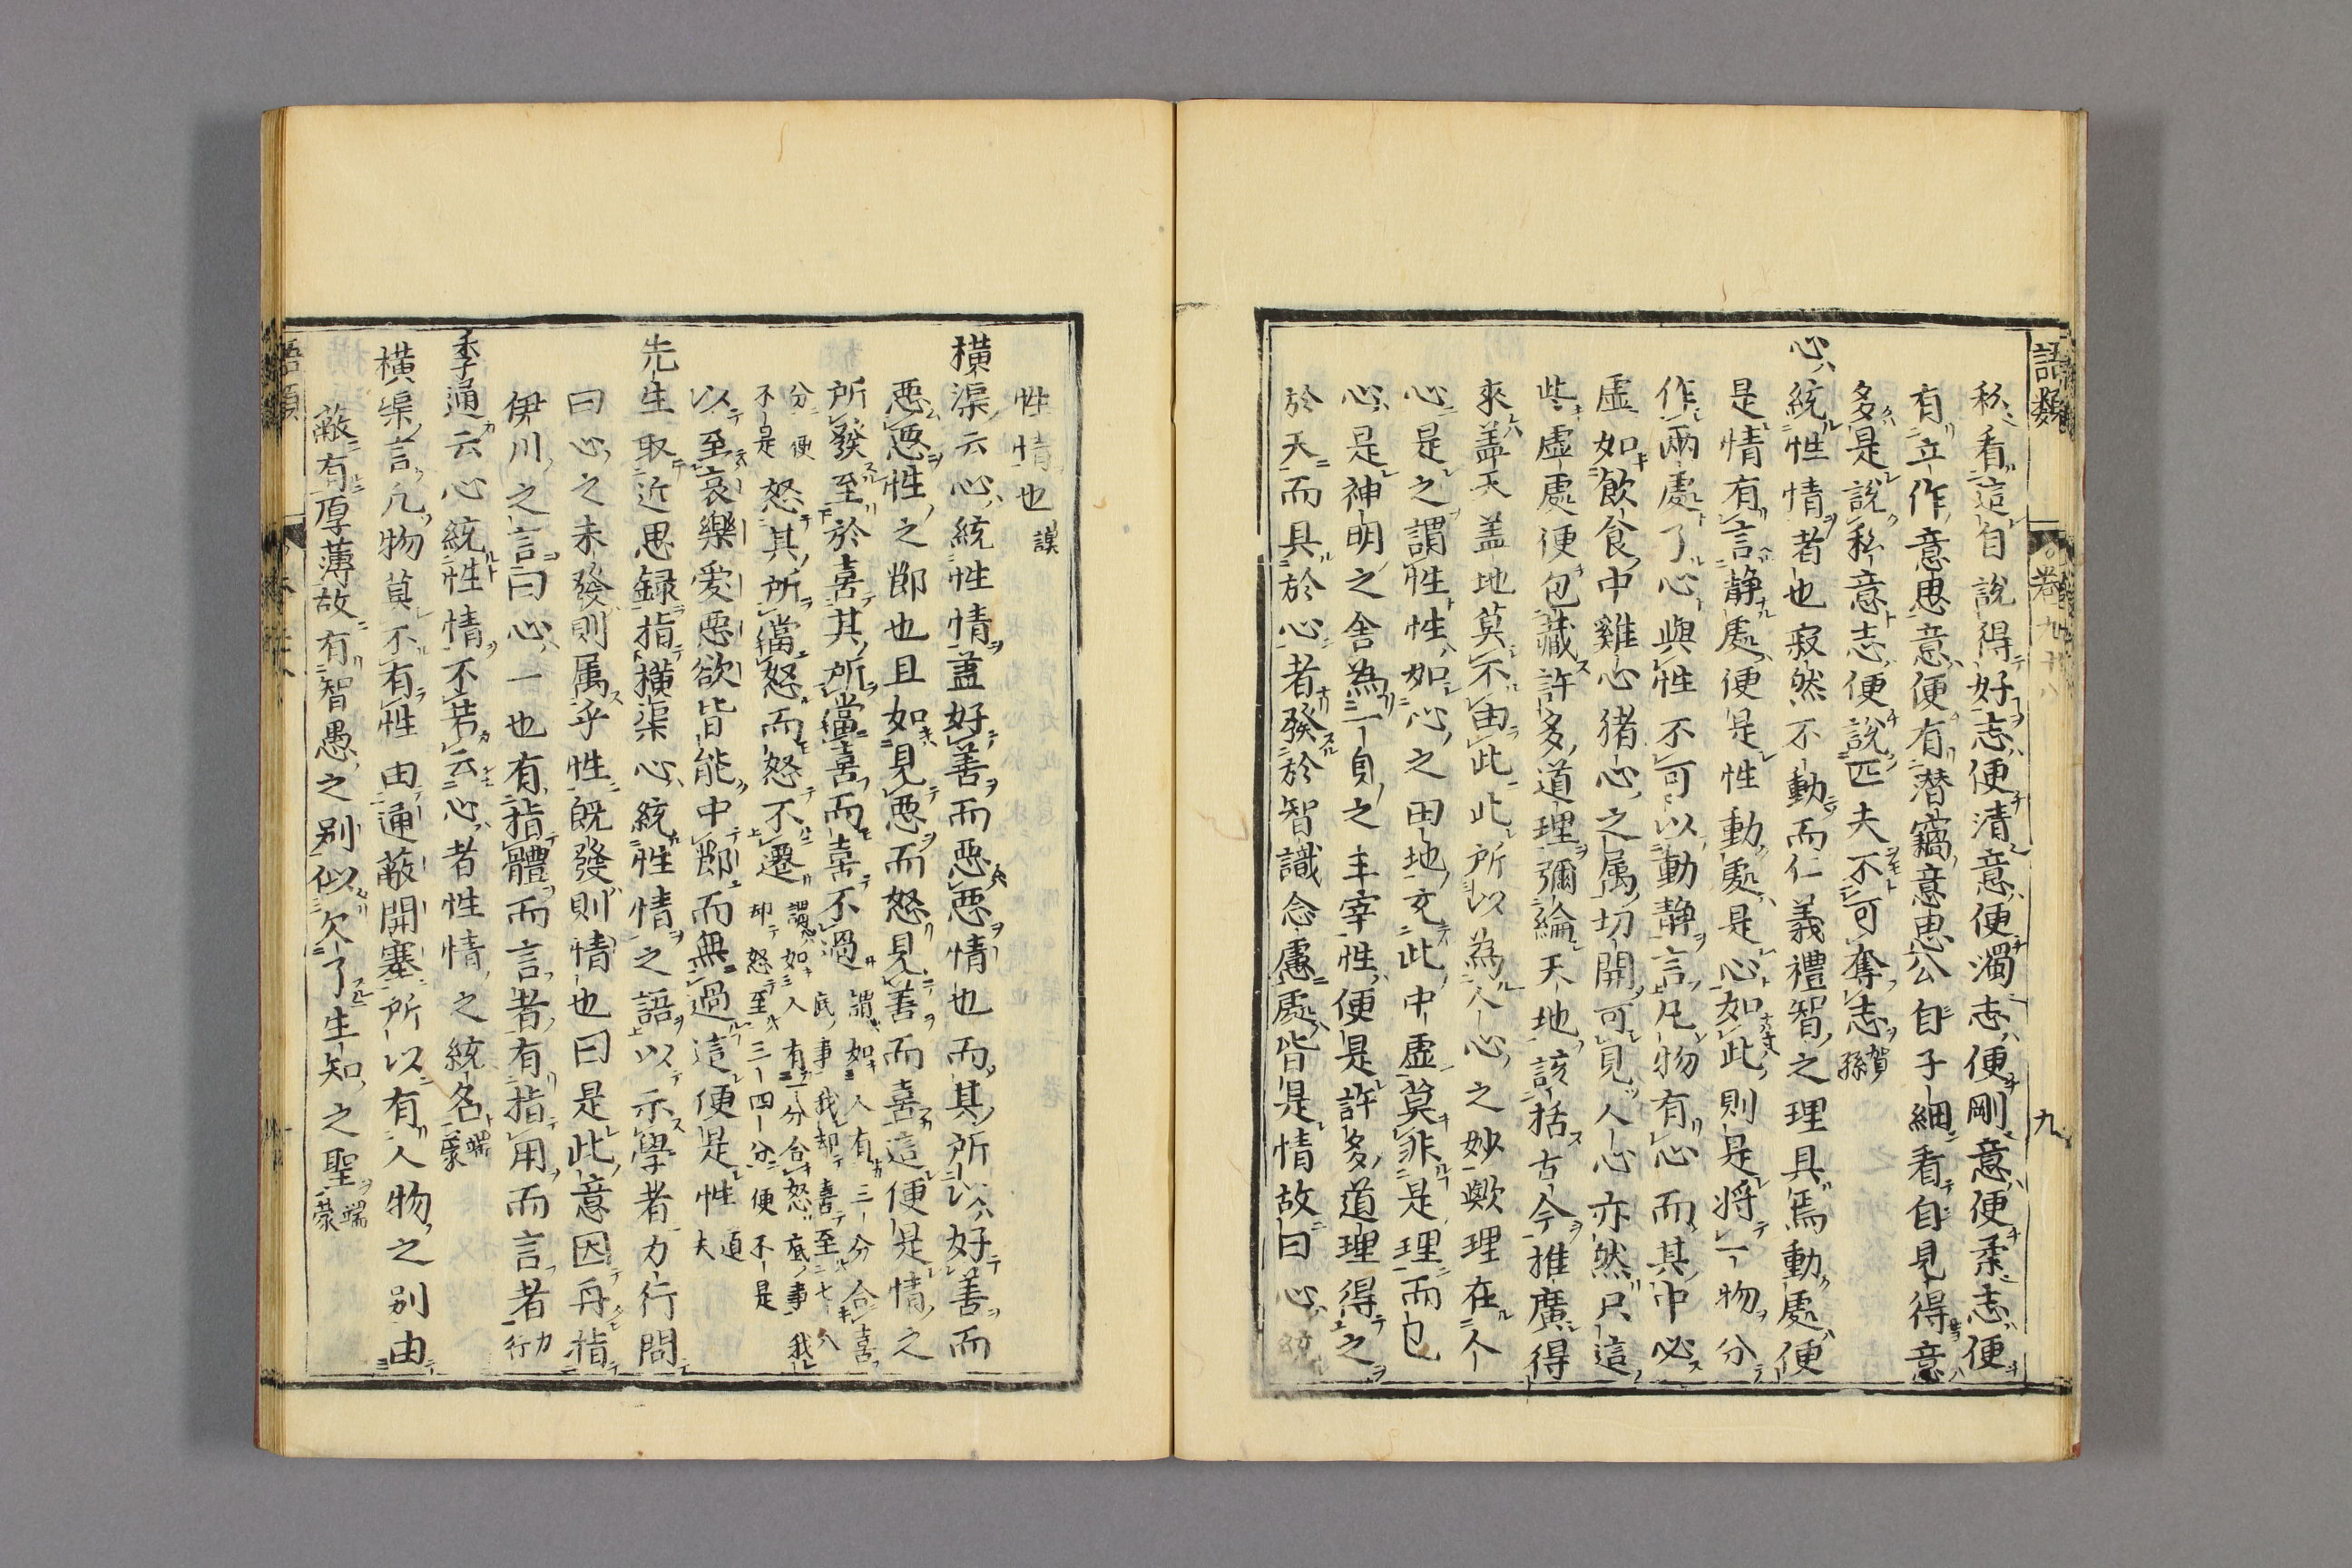 語類
卷九十八
九
私看這自說得好志便清意便濁志便剛意便柔志便
有立作意思意便有潜竊意思公自子細看自見得意
多是說私意志便說匹夫不可奪志賀孫
心統性情者也寂然不動而仁義禮智之理具焉動處便
是情有言静處便是性動處是心如此則是將一物分
作兩處了心與性不可以動静言凡物有心而其中必
虛如飲食中雞心猪心之属切開可見人心亦然只這
些虛處便包藏許多道理彌綸天地該括古今推廣得
來盖天盖地莫不由此此所以為人心之妙歟理在人
心是之謂性性如心之田地充此中虛莫非是理而已
心是神明之舎為一身之主宰性便是許多道理得之
於天而具於心者發於智識念慮處皆是情故曰心統
性情也謨
横渠云心統性情盖好善而惡惡情也而其所以好善而
惡惡性之節也且如見惡而怒見善而喜這便是情之
所發至於喜其所當喜而喜不過謂如人有三分合喜底事我却喜至七八
分便不是怒其所當怒而怒不遷謂如人有一分合怒底事我却怒至三四分便不是
以至哀樂愛惡欲皆能中節而無過這便是性道夫
先生取近思録指横渠心統性情之語以示學者力行問
曰心之未發則属乎性既發則情也曰是此意因再指
伊川之言曰心一也有指體而言者有指用而言者力行
季通云心統性情不若云心者性情之統名端蒙
横渠言凡物莫不有性由通蔽開塞所以有人物之别由
蔽有厚薄故有智愚之别似欠了生知之聖端蒙
語類